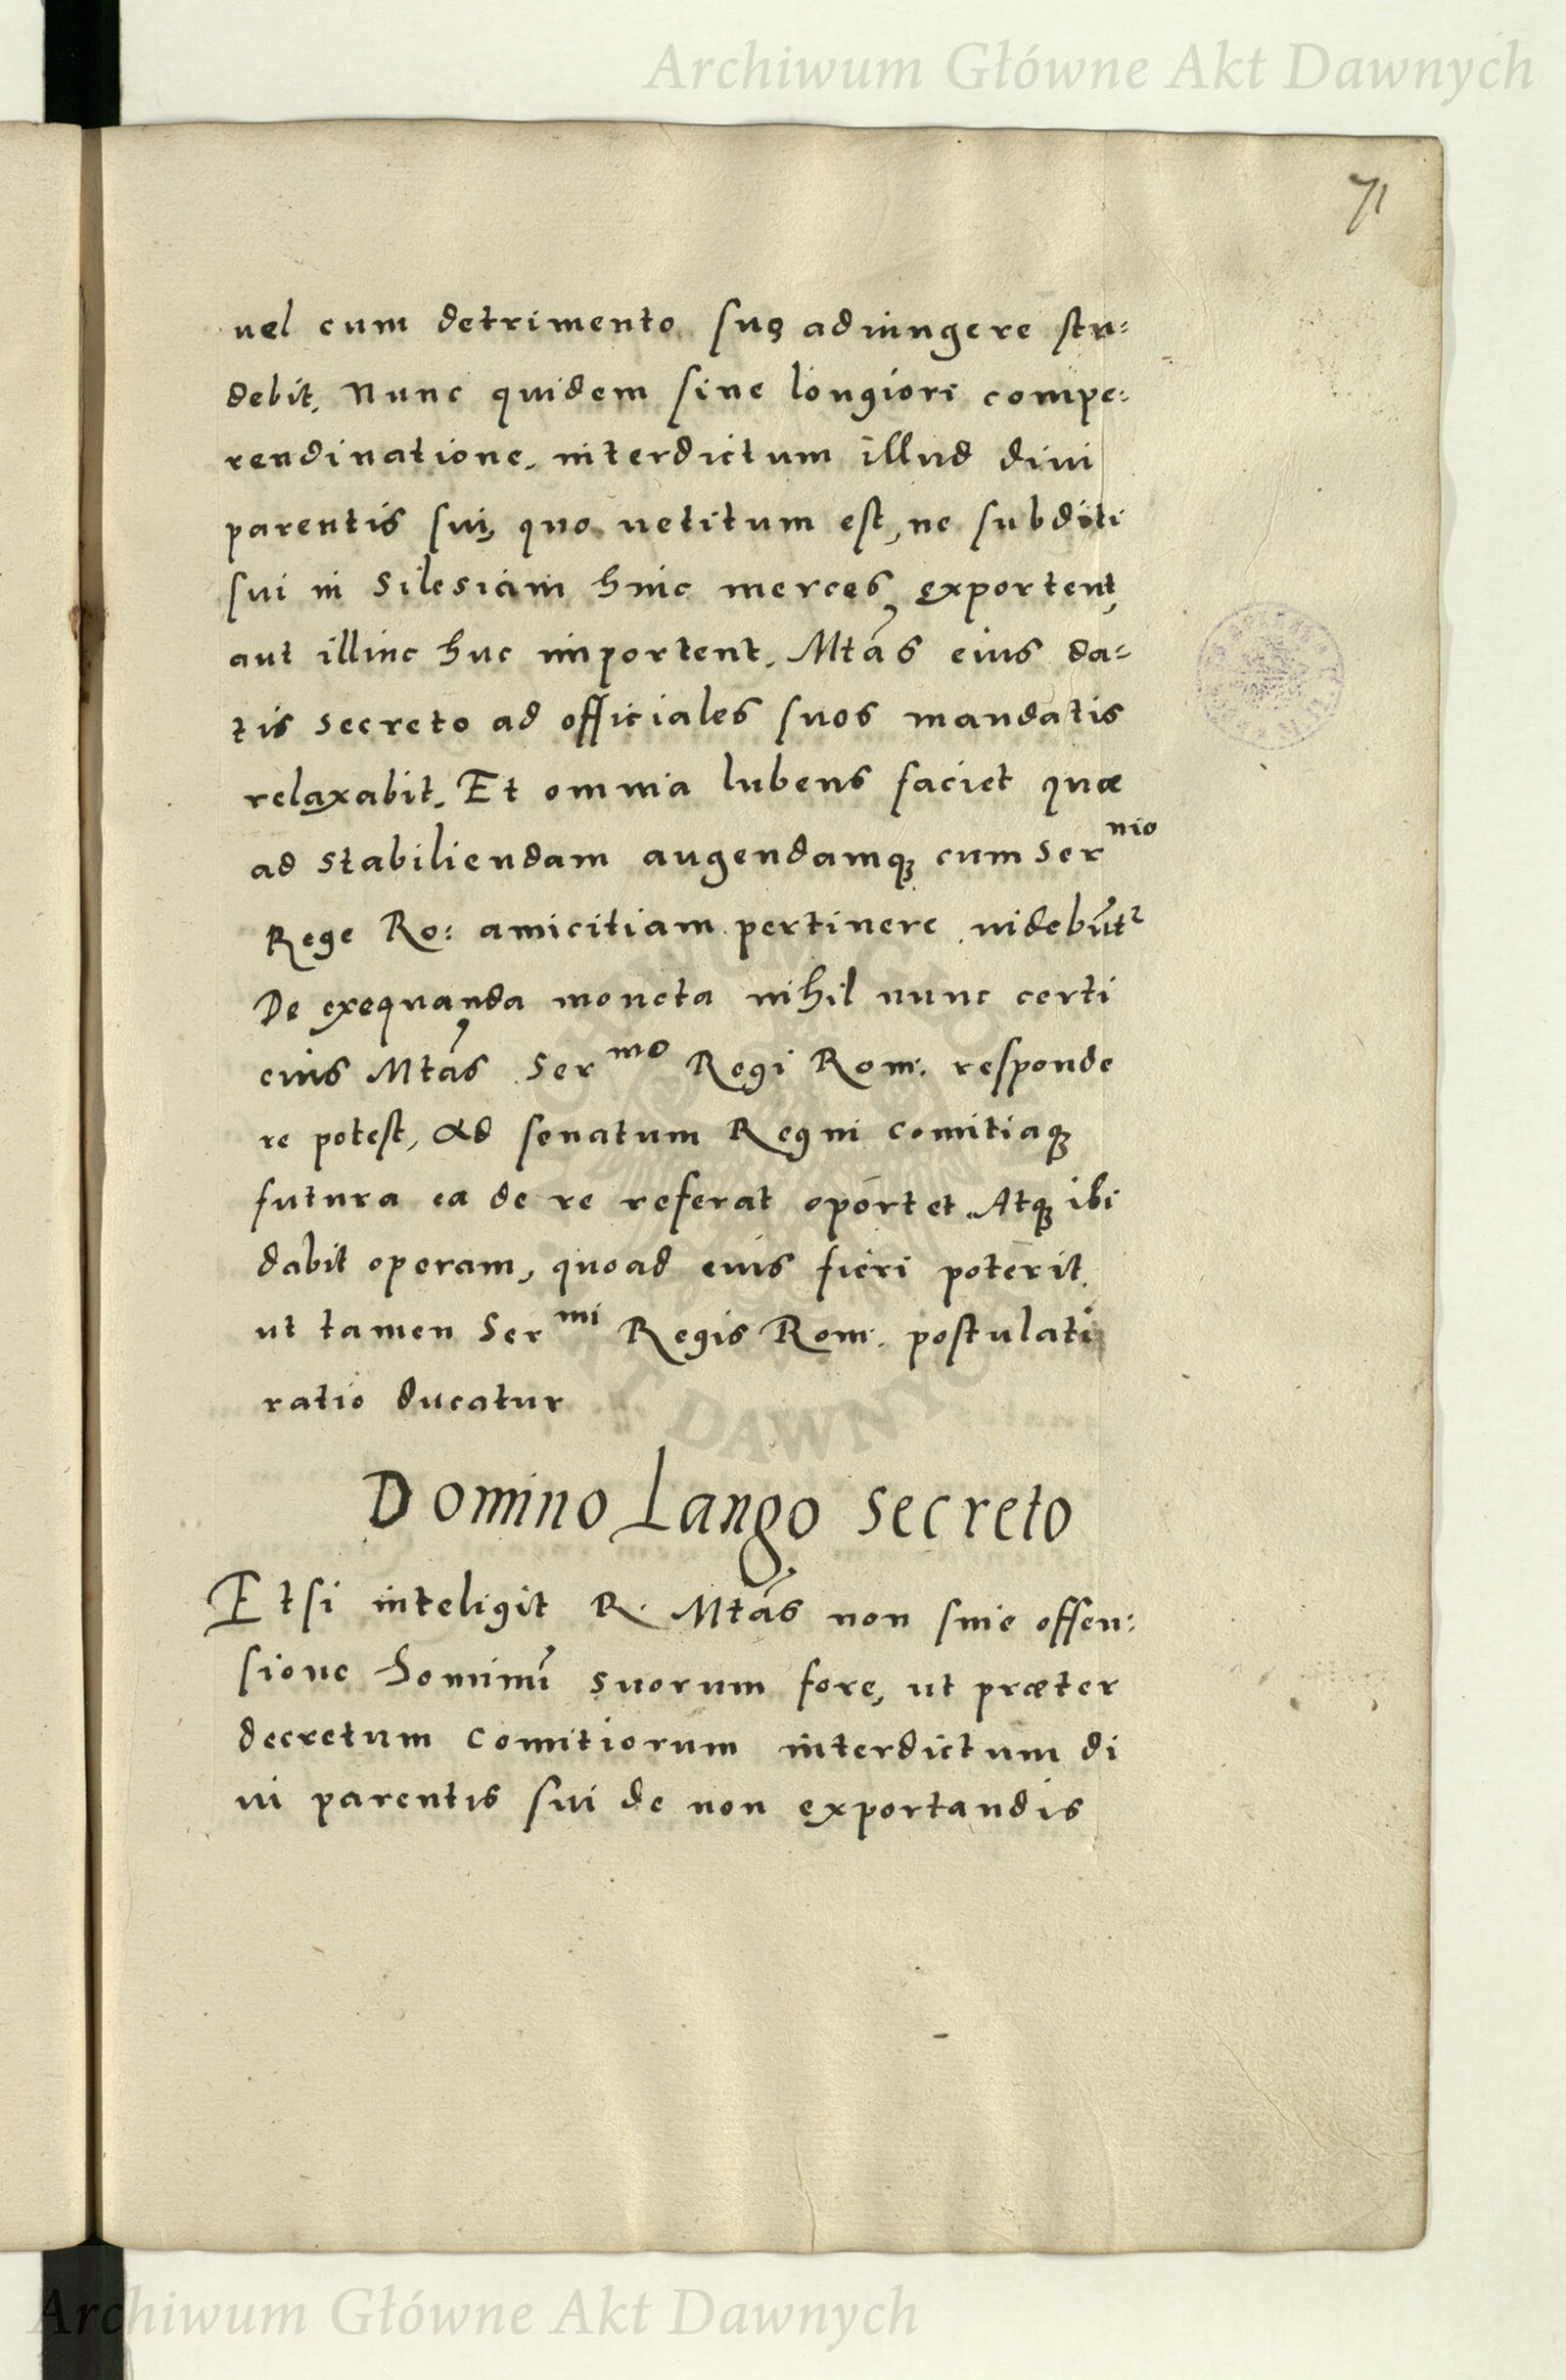 Archiwum Główne Akt Dawnych
71
uel cum detrimento suo adiungere stu:
debit. Nunc quidem sine longiori compe:
rendinatione, interdictum illud diui
parentis sui, quo uetitum est, ne subditi
sui in Silesiam hinc merces exportent,
aut illinc huc importent. Mtás eius da=
tis secreto ad officiales suos mandatis
relaxabit. Et omnia lubens faciet quæ
ad stabiliendam augendamq; cum Ser mo
Rege Ro: amicitiam pertinere uidebūtr
De exequanda moneta nihil nunc certi
eius Mtás Ser mo Regi Rom: responde
re potest, Ad senatum Regni comitiaq;
futura ea de re referat oportet. Atq; ibi
dabit operam, quoad eius fieri poterit.
ut tamen Ser mi Regis Rom. postulati
ratio ducatur
Domino Lango secreto
Etsi inteligit R. Mtás non sine offen:
sione hominū suorum fore, ut præter
decretum comitiorum interdictum di
ui parentis sui de non exportandis
Archiwum Główne Akt Dawnych